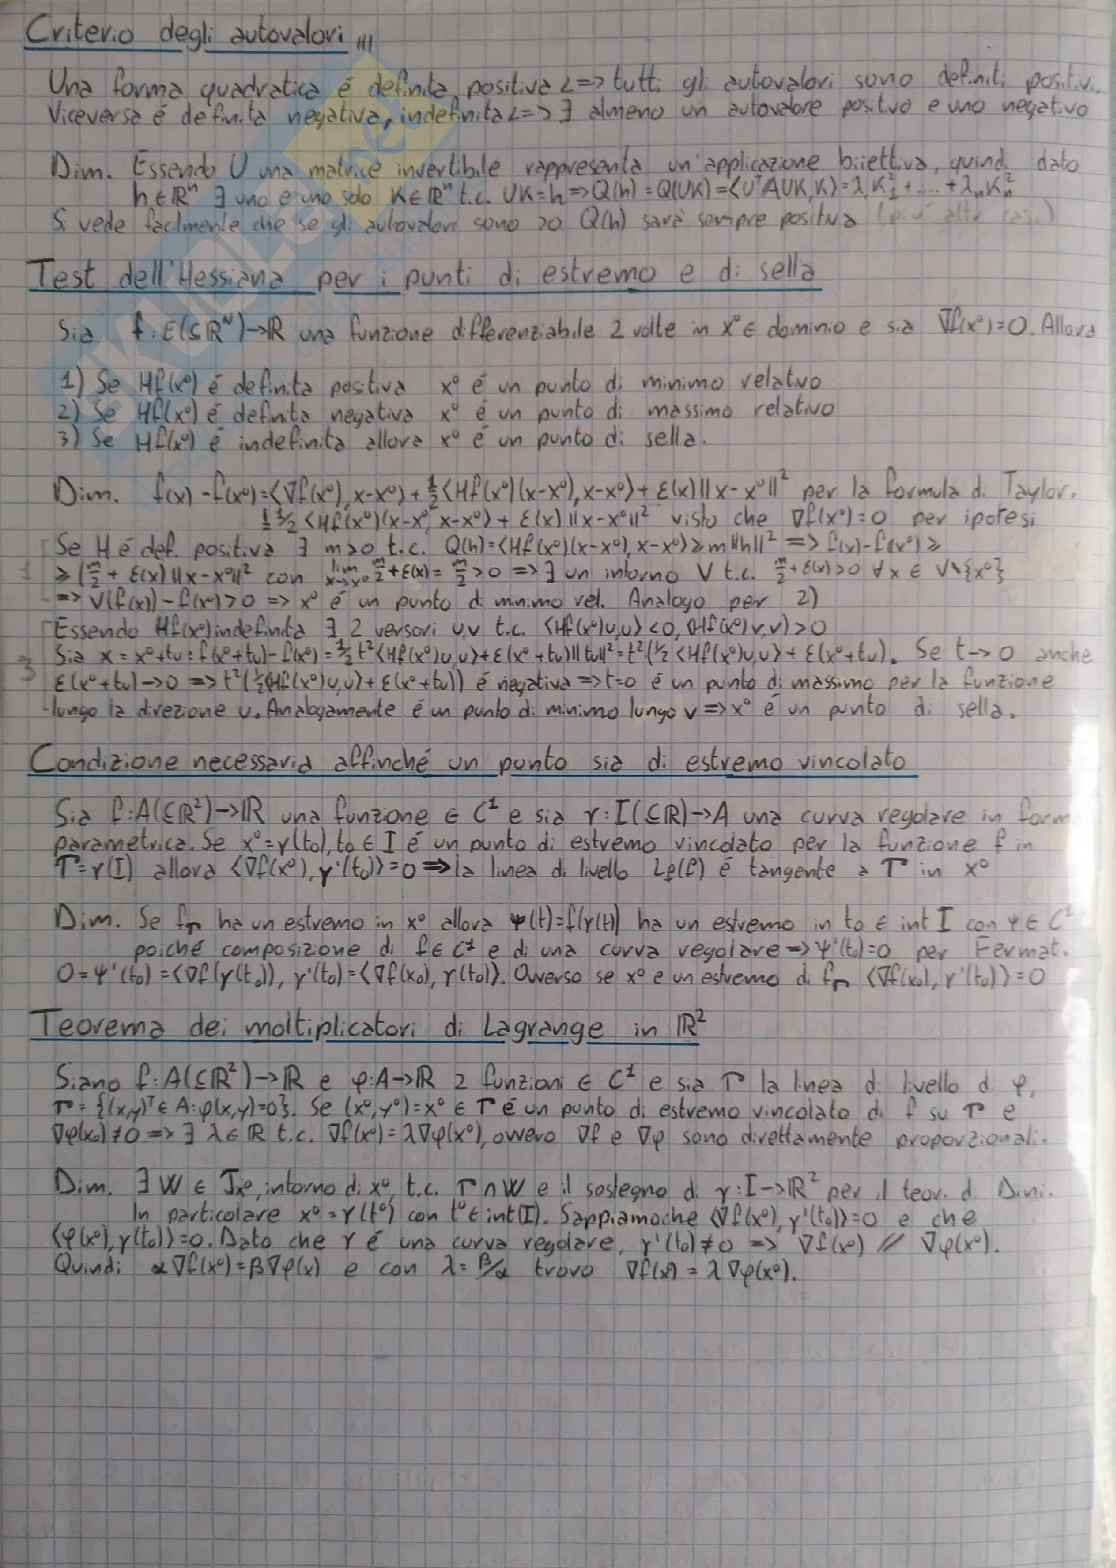 Criterio degli autovalori
Una forma quadratica è definita positiva <=> tutti gli autovalori sono definiti positivi.
Viceversa è definita negativa, indefinita <=> ∃ almeno un autovalore positivo e uno negativo
Dim. Essendo U una matrice invertibile rappresenta un'applicazione biiettiva, quindi dato
h∈ℝⁿ ∃ uno e uno solo K∈ℝⁿ t.c. UK=h => Q(h)=Q(UK)=⟨UᵀAUK,K⟩=λ₁K₁²+...+λₙKₙ²
Si vede facilmente che se gli autovalori sono >0 Q(h) sarà sempre positiva
Test dell'Hessiana per i punti di estremo e di sella
Sia f:E(⊆ℝᴺ)→ℝ una funzione differenziabile 2 volte in x⁰∈ dominio e sia ∇f(x⁰)=0. Allora
1) Se Hf(x⁰) è definita positiva x⁰ è un punto di minimo relativo
2) Se Hf(x⁰) è definita negativa x⁰ è un punto di massimo relativo
3) Se Hf(x⁰) è indefinita allora x⁰ è un punto di sella.
Dim. f(x)-f(x⁰)=⟨∇f(x⁰), x-x⁰⟩+½⟨Hf(x⁰)(x-x⁰), x-x⁰⟩+ε(x)||x-x⁰||² per la formula di Taylor.
½⟨Hf(x⁰)(x-x⁰, x-x⁰⟩+ε(x)||x-x⁰||² visto che ∇f(x⁰)=0 per ipotesi
Se H è def. positiva ∃ m>0 t.c. Q(h)=⟨Hf(x⁰)(x-x⁰), x-x⁰⟩≥m||h||² => f(x)-f(x⁰)≥
≥(m/2+ε(x)||x-x⁰||² con lim x→x⁰ m/2+ε(x)=m/2>0 => ∃ un intorno V t.c. m/2+ε(x)>0 ∀x∈V\{x⁰}
=> V(f(x))-f(x⁰)>0 => x⁰ è un punto di minimo rel. Analogo per 2)
Essendo Hf(x⁰) indefinita ∃ 2 versori u,v t.c. ⟨Hf(x⁰)u,u⟩<0, ⟨Hf(x⁰)v,v⟩>0
3 Sia x=x⁰+tu: f(x⁰+tu)-f(x⁰)=½t²⟨Hf(x⁰)u,u⟩+ε(x⁰+tu)||tu||²=t²(½⟨Hf(x⁰)u,u⟩+ε(x⁰+tu). Se t→0 anche
ε(x⁰+tu)→0 => t²(½⟨Hf(x⁰)u,u⟩+ε(x⁰+tu)) è negativa => t=0 è un punto di massimo per la funzione
lungo la direzione u. Analogamente è un punto di minimo lungo v => x⁰ è un punto di sella.
Condizione necessaria affinché un punto sia di estremo vincolato
Sia f:A(⊆ℝ²)→ℝ una funzione ∈C¹ e sia γ:I(⊆ℝ)→A una curva regolare in form
parametrica. Se x⁰=γ(t₀), t₀∈I è un punto di estremo vincolato per la funzione f in
Γ=γ(I) allora ⟨∇f(x⁰), γ'(t₀)⟩=0 => la linea di livello è tangente a Γ in x⁰
Dim. Se f_Γ ha un estremo in x⁰ allora ψ(t)=f(γ(t)) ha un estremo in t₀ ∈ int I con ψ∈C¹
poiché composizione di f∈C¹ e di una curva regolare => ψ'(t₀)=0 per Fermat.
0=ψ'(t₀)=⟨∇f(γ(t₀)), γ'(t₀)=⟨∇f(x₀), γ(t₀)⟩. Ovverso se x⁰ è un estremo di f_Γ ⟨∇f(x₀), γ'(t₀)⟩=0
Teorema dei moltiplicatori di Lagrange in ℝ²
Siano f:A(⊆ℝ²)→ℝ e φ:A→ℝ 2 funzioni ∈C¹ e sia Γ la linea di livello di φ,
Γ={(x,y)ᵀ∈A:φ(x,y)=0}. Se (x⁰,y⁰)=x⁰∈Γ è un punto di estremo vincolato di f su Γ e
∇φ(x₀)≠0 => ∃ λ∈ℝ t.c. ∇f(x⁰)=λ∇φ(x⁰), ovvero ∇f e ∇φ sono direttamente proporzionali.
Dim. ∃ W∈ℐx⁰, intorno di x⁰, t.c. Γ∩W e il sostegno di γ:I→ℝ² per il teor. di Dini.
In particolare x⁰=γ(t⁰) con t⁰∈int(I). Sappiamo che ⟨∇f(x⁰), γ'(t₀)⟩=0 e che
⟨φ(x⁰), γ(t₀)⟩=0. Dato che γ è una curva regolare, γ'(t₀)≠0 => ∇f(x⁰) // ∇φ(x⁰).
Quindi α∇f(x⁰)=β∇φ(x) e con λ=β/α trovo ∇f(x)=λ∇φ(x⁰).